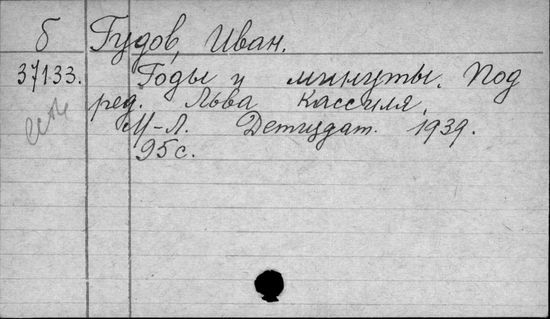 б Гудов, Иван.
37133. Годы и минуты. Под
ред. Льва Кассиля.
есть М-Л. Детиздат. 1939.
95 с.